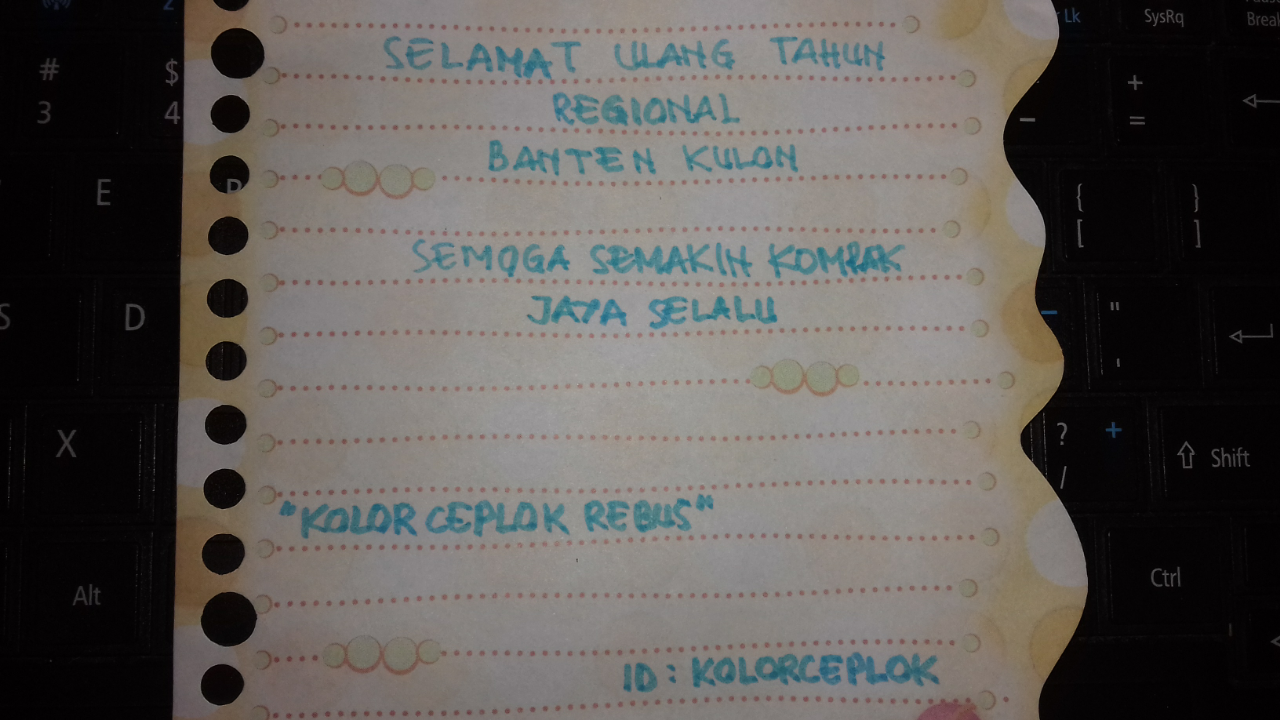 SELAMAT ULANG TAHUN
REGIONAL
BANTEN KULON
SEMOGA SEMAKIN KOMPAK
JAYA SELALU
"KOLOR CEPLOK REBUS"
ID : KOLORCEPLOK
2
Lk
SysRq
Break
#
$
3
4
+
=
-
E
R
{
}
[
]
S
D
"
'
X
?
+
/
Shift
Alt
Ctrl